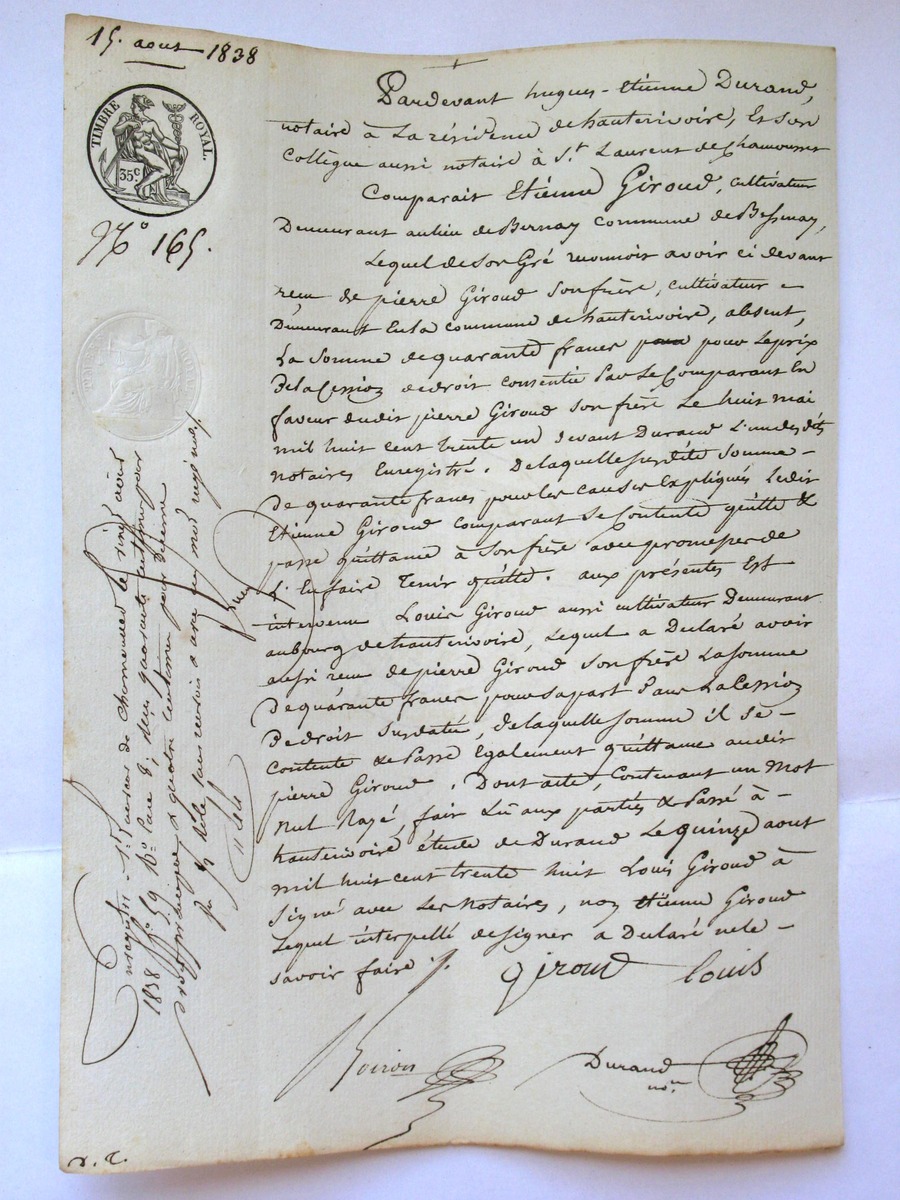 15. aout 1838
TIMBRE ROYAL.
35c
No 165.
Pardevant hugues-Etienne Durand,
notaire à La résidence de hauterivoire, Et son
Collègue aussi notaire à St. Laurent de Chamousset
Comparait Etienne Giroud, cultivateur
Demeurant au lieu de Bernay commune de Bessenay,
Lequel de son Gré reconnoit avoir ci devant
reçu de pierre Giroud son frère, cultivateur
Demeurant En la commune de hauterivoire, absent,
La somme de quarante francs pour Le prix
De la Cession de droit consentie Par Le Comparant En
faveur dudit pierre Giroud son frère Le huit mai
mil huit cent trente un devant Durand L'un desdits
notaires Enregistré. De laquelle susdite somme
De quarante francs pour les causes Expliquées Ledit
Etienne Giroud comparant se Contente quitte &
passe quittance à son frère avec promesse de
L'En faire Tenir quitte. aux présentes Est
intervenu Louis Giroud aussi cultivateur Demeurant
au bourg de hauterivoire, Lequel a Déclaré avoir
aussi reçu de pierre Giroud son frère La somme
De quarante francs pour sa part Dans La Cession
De droit susdatée, de laquelle somme il se
contente & Passe Egalement quittance audit
pierre Giroud. Dont acte, Contenant un Mot
Nul Rayé, fait Lû aux parties & Passé à
hauterivoire étude de Durand Le quinze aout
mil huit cent trente huit Louis Giroud à
Signé avec Les Notaires, non Etienne Giroud
Lequel interpellé de signer a Déclaré ne le
savoir faire ./.
giroud Louis
Durand
nore.
Enregistré à St Laurent de Chamousset le vingt aout
1838 fo 59 Ro Case 8; deux quarante centimes pour
& quatre centimes pour décime